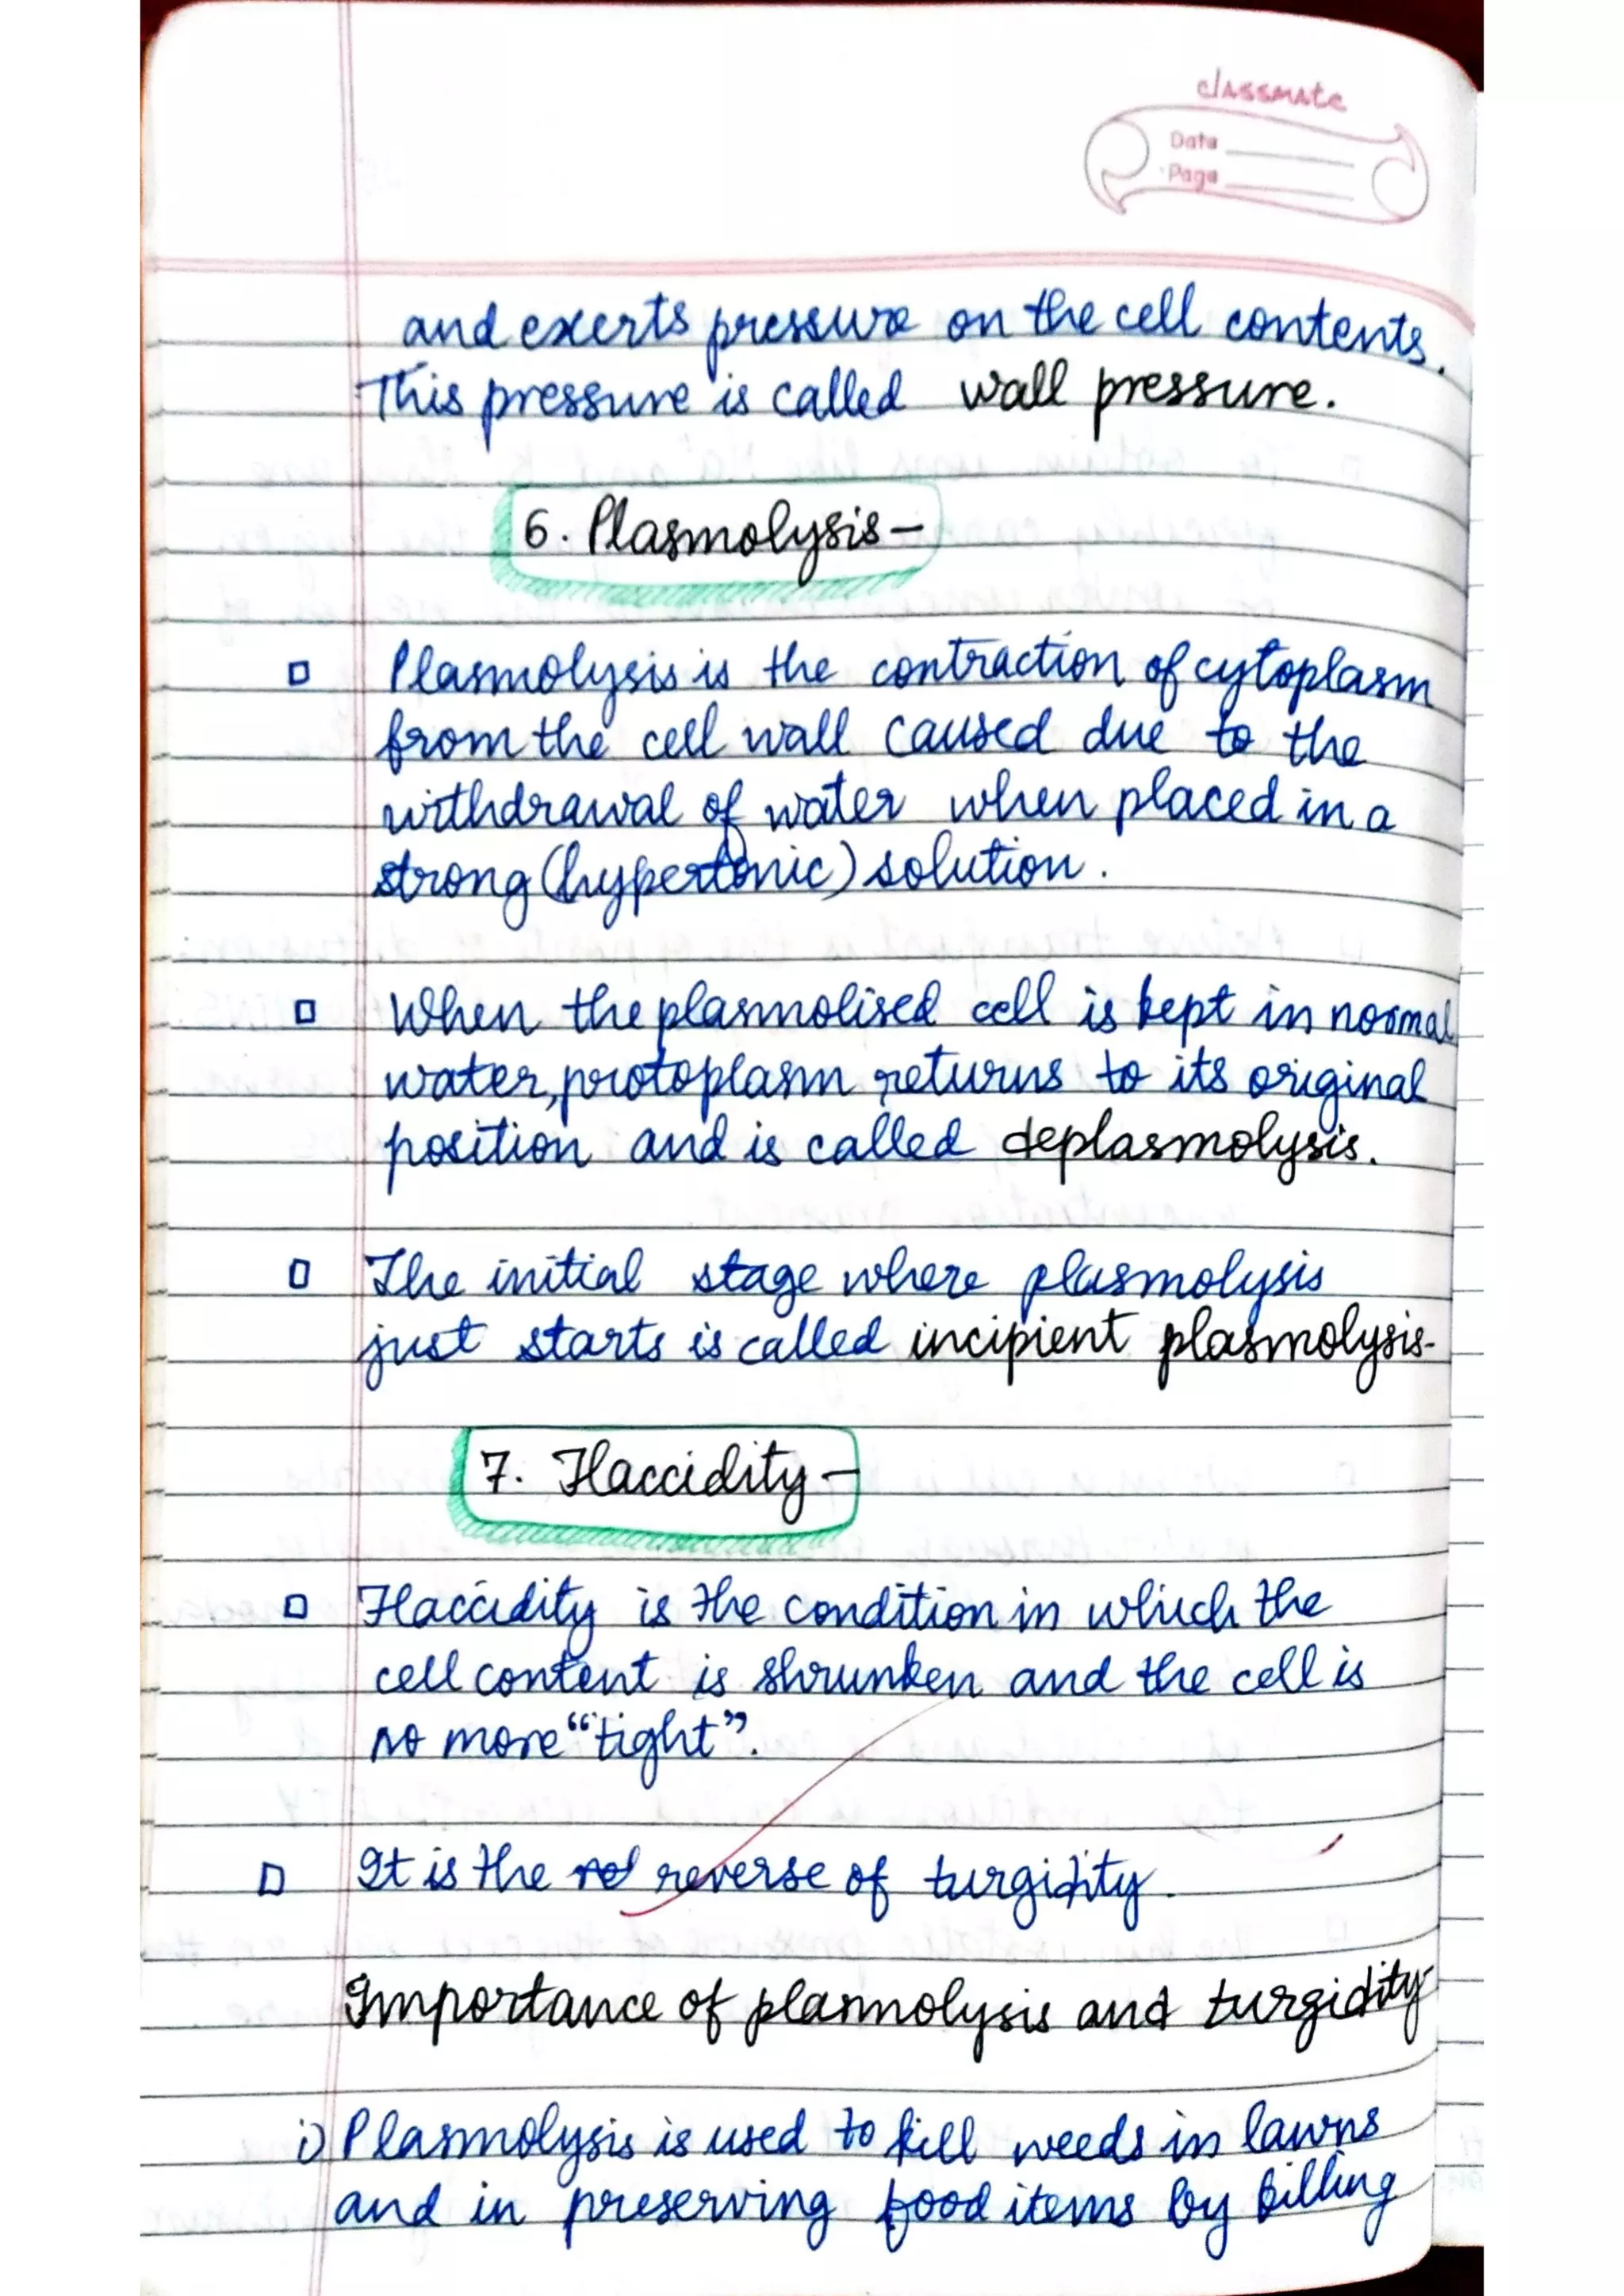 classmate
Date
Page
and exerts pressure on the cell contents.
This pressure is called wall pressure.
6. Plasmolysis-
Plasmolysis is the contraction of cytoplasm
from the cell wall caused due to the
withdrawal of water when placed in a
strong (hypertonic) solution.
When the plasmolised cell is kept in normal
water, protoplasm returns to its original
position and is called deplasmolysis.
The initial stage where plasmolysis
just starts is called incipient plasmolysis-
7. Flaccidity-
Flaccidity is the condition in which the
cell content is shrunken and the cell is
no more "tight".
It is the reverse of turgidity.
Importance of plasmolysis and turgidity-
i) Plasmolysis is used to kill weeds in lawns
and in preserving food items by killing